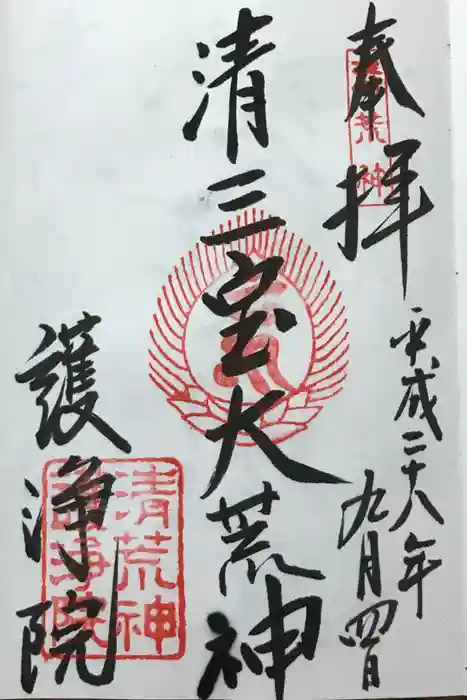 奉拝
平成二十八年
九月四日
清荒神
清三宝大荒神
護浄院
清荒神
護浄院